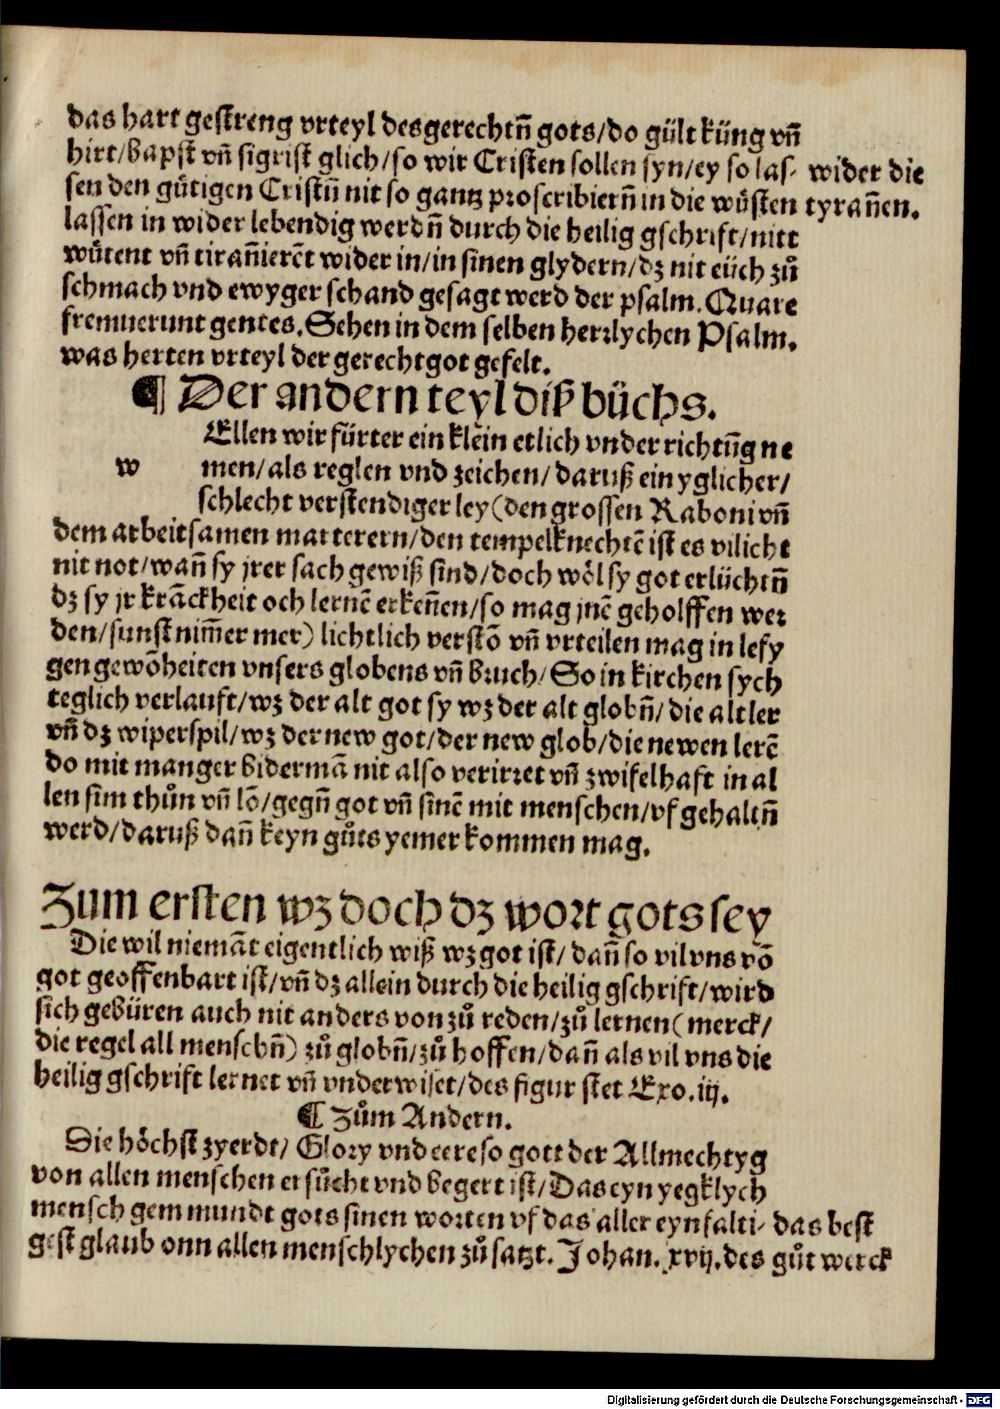 das hart gestreng vrteyl des gerechtñ gots/do gült küng vñ
hirt/bapst vñ sigrist glich/so wir Cristen sollen syn/ey so las- wider die
sen den gütigen Cristũ nit so gantz proscribierñ in die wüsten tyrañen.
lassen in wider lebendig werdñ durch die heilig gschrift/nitt
wütent vñ tirañierẽt wider in/in sinen glydern/dz nit eüch zů
schmach vnd ewyger schand gesagt werd der psalm. Quare
fremuerunt gentes. Sehen in dem selben herrlychen Psalm.
was herten vrteyl der gerecht got gefelt.
¶ Der andern teyl diß büchs.
Ellen wir fürter ein klein etlich vnderrichtũg ne
w men/als reglen vnd zeichen/daruß ein yglicher/
schlecht verstendiger ley (den grossen Raboni vñ
dem arbeitsamen matterern/den tempelknechtẽ ist es vilicht
nit not/wañ sy jrer sach gewiß sind/doch wöl sy got erlüchtñ
dz sy jr krãckheit och lernẽ erkeñen/so mag jnẽ geholffen wer
den/sunst nim̃er mer) lichtlich verstõ vñ vrteilen mag in lesy
gen gewõheiten vnsers globens vñ bruch/So in kirchen sych
teglich verlauft/wz der alt got sy wz der alt globñ/die alt ler
vñ dz wiperspil/wz der new got/der new glob/die newen lerẽ
do mit manger bidermã nit also verirret vñ zwifelhaft in al
len sim thůn vñ lõ/gegñ got vñ sinẽ mit menschen/vf gehaltñ
werd/daruß dañ keyn gůts yemer kommen mag.
Zum ersten wz doch dz wort gots sey
Die wil niemãt eigentlich wiß wz got ist/dañ so vil vns võ
got geoffenbart ist/vñ dz allein durch die heilig gschrift/wird
sich gebüren auch nit anders von zů reden/zů lernen (merck/
die regel all menschñ) zů globñ/zů hoffen/dañ als vil vns die
heilig gschrift lernet vñ vnderwiset/des figur stet Exo. iij.
¶ Zům Andern.
Die höchst zyerdt/ Glory vnd eere so gott der Allmechtyg
von allen menschen ersůcht vnd begert ist/Das eyn yegklych
mensch gem mundt gots sinen worten vf das aller eynfalti- das best
gest glaub onn allen menschlychen zů satzt. Johan. xvij. des gůt werck